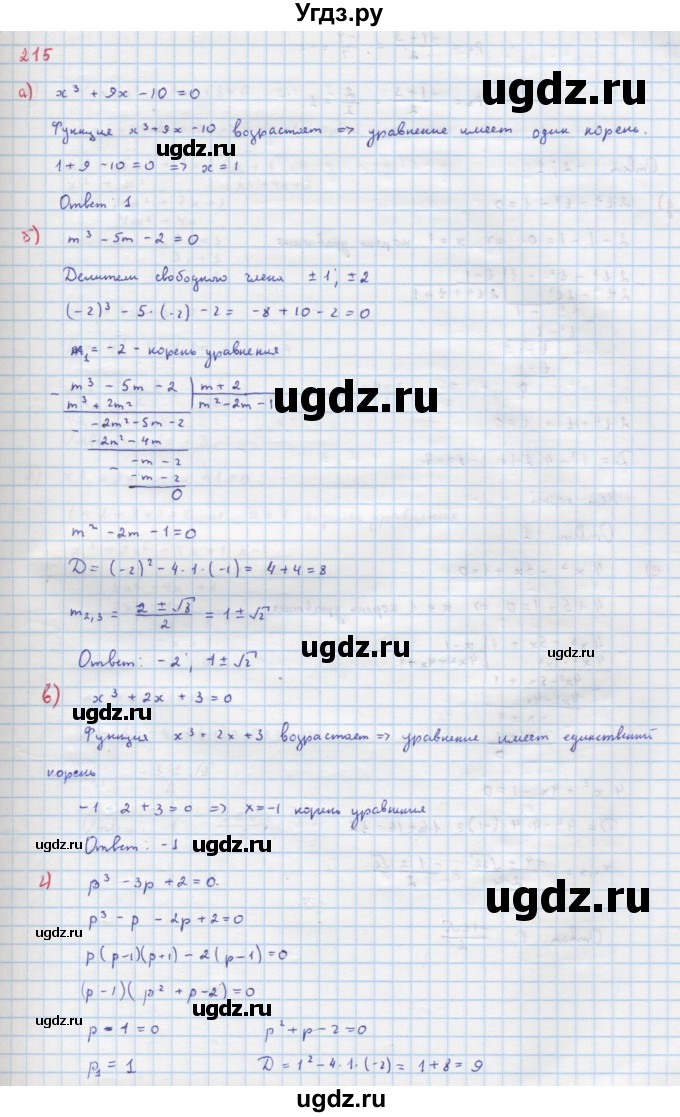 Угдз.ру
215
а) x³ + 9x - 10 = 0
Функция x³ + 9x - 10 возрастает => уравнение имеет один корень.
ugdz.ru
ugdz.ru
1 + 9 - 10 = 0 => x = 1
Ответ: 1
б) m³ - 5m - 2 = 0
Делители свободного члена ± 1; ± 2
(-2)³ - 5·(-2) - 2 = -8 + 10 - 2 = 0
m₁ = -2 - корень уравнения
m³ - 5m - 2 | m + 2
m³ + 2m² | m² - 2m - 1
ugdz.ru
- -2m² - 5m - 2
-2m² - 4m
- -m - 2
-m - 2
0
m² - 2m - 1 = 0
D = (-2)² - 4·1·(-1) = 4 + 4 = 8
m₂,₃ = (2 ± √8)/2 = 1 ± √2
ugdz.ru
Ответ: -2; 1 ± √2
в) x³ + 2x + 3 = 0
ugdz.ru
Функция x³ + 2x + 3 возрастает => уравнение имеет единственный
корень
-1 2 + 3 = 0 => x = -1 корень уравнения
Ответ: -1
ugdz.ru
ugdz.ru
г) p³ - 3p + 2 = 0.
ugdz.ru
p³ - p - 2p + 2 = 0
ugdz.ru
p(p-1)(p+1) - 2(p-1) = 0
(p-1)(p² + p - 2) = 0
ugdz.ru
p - 1 = 0 p² + p - 2 = 0
p₁ = 1 D = 1² - 4·1·(-2) = 1 + 8 = 9
ugdz.ru
ugdz.ru